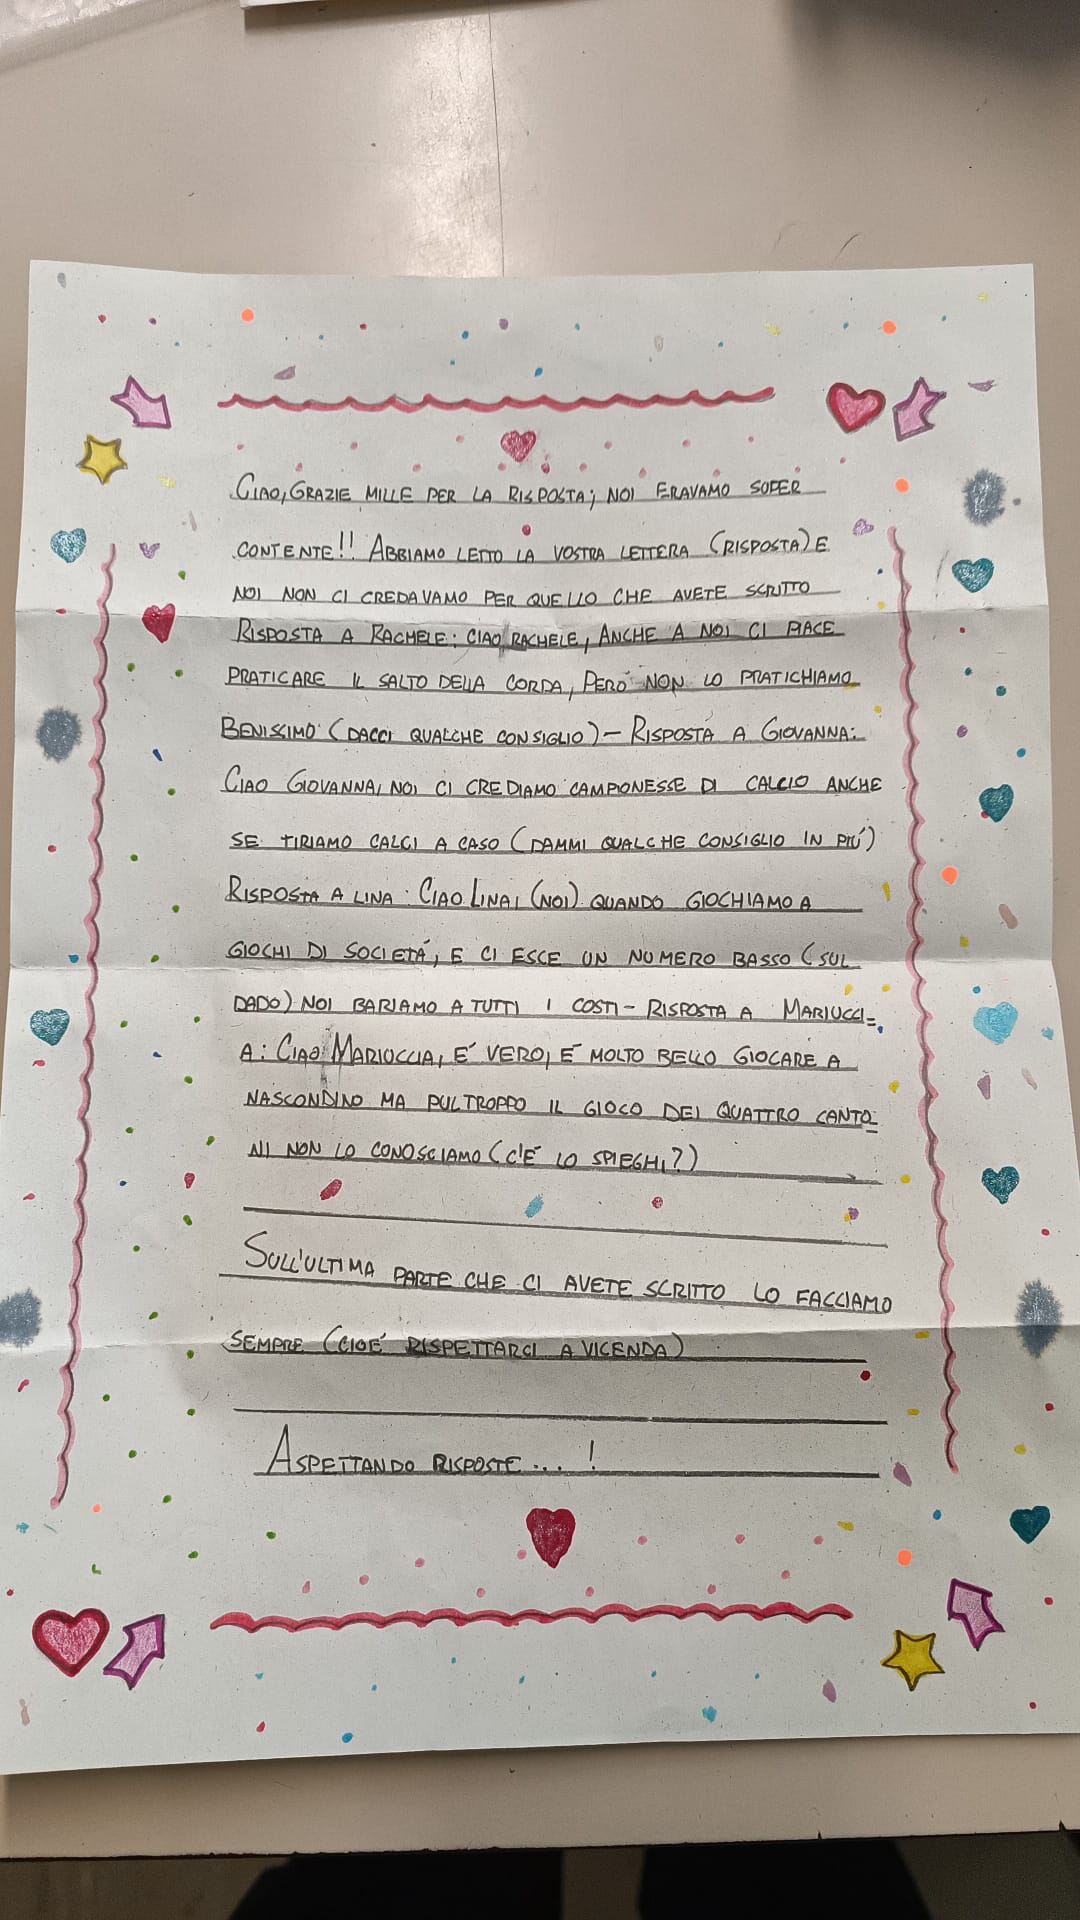 CIAO, GRAZIE MILLE PER LA RISPOSTA; NOI ERAVAMO SUPER
CONTENTE!! ABBIAMO LETTO LA VOSTRA LETTERA (RISPOSTA) E
NOI NON CI CREDAVAMO PER QUELLO CHE AVETE SCRITTO
RISPOSTA A RACHELE: CIAO RACHELE, ANCHE A NOI CI PIACE
PRATICARE IL SALTO DELLA CORDA, PERÓ NON LO PRATICHIAMO
BENISSIMO (DACCI QUALCHE CONSIGLIO) – RISPOSTA A GIOVANNA:
CIAO GIOVANNA, NOI CI CREDIAMO CAMPIONESSE DI CALCIO ANCHE
SE TIRIAMO CALCI A CASO (DAMMI QUALCHE CONSIGLIO IN PIÚ)
RISPOSTA A LINA: CIAO LINA, (NOI) QUANDO GIOCHIAMO A
GIOCHI DI SOCIETÁ, E CI ESCE UN NUMERO BASSO (SUL
DADO) NOI BARIAMO A TUTTI I COSTI – RISPOSTA A MARIUCCI=
A: CIAO MARIUCCIA, É VERO, É MOLTO BELLO GIOCARE A
NASCONDINO MA PULTROPPO IL GIOCO DEI QUATTRO CANTO=
NI NON LO CONOSCIAMO (C'É LO SPIEGHI?)
SULL'ULTIMA PARTE CHE CI AVETE SCRITTO LO FACCIAMO
SEMPRE (CIOÉ RISPETTARCI A VICENDA)
ASPETTANDO RISPOSTE...!